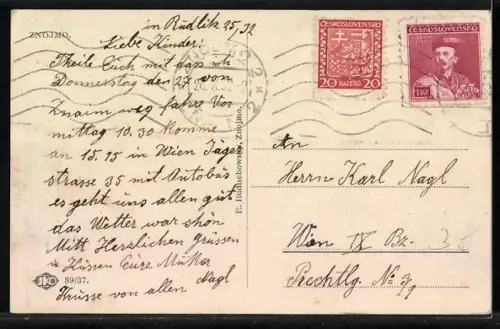 ZNOJMO.
in Rudlitz 25/32
Liebe Kinder:
Theile Euch mit dass ich
Donnerstag den 27 von
Znaim weg fahre Vor-
mittag 10.30 Komme
an 15.15 in Wien Jäger
strasse 35 mit Autobus
es geht uns allen gut
das Wetter war schön
Mitt Herzlichen Grüssen
u Küssen Eure Mutter
Nagl
Küsse von allen
JKO
89/37.
E. Budischowský, Znojmo.
ČESKOSLOVENSKO
20 HALÉŘŮ 20
ČESKOSLOVENSKO
1Kč
An
Herrn Karl Nagl
Wien IX Bz.
35
Rechtlg. No